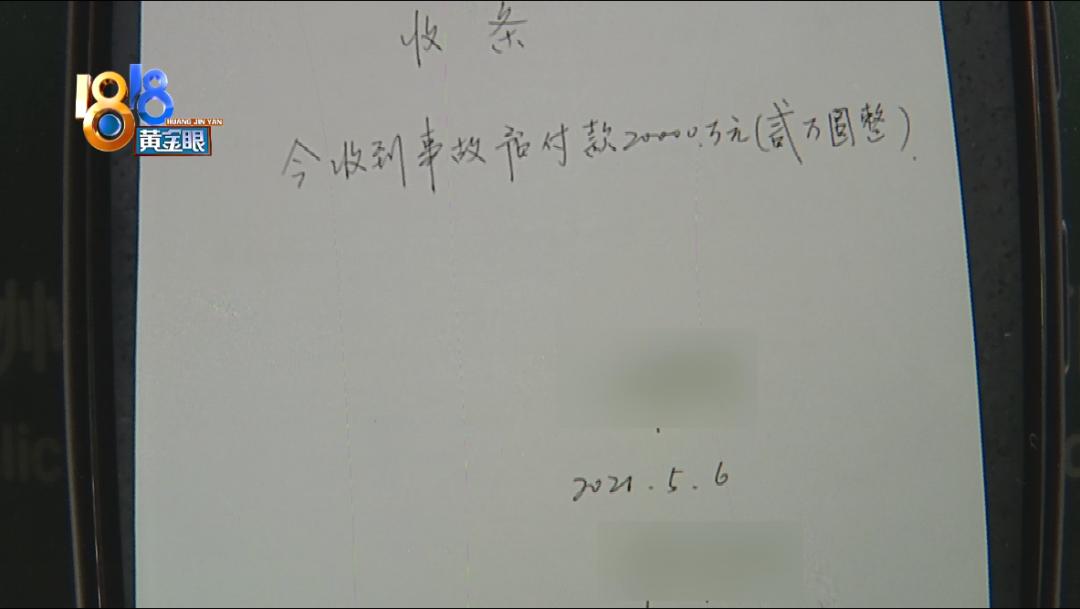 收 条
1818
HUANG JIN YAN
黄金眼
今收到事故付款20000.万元(贰万圆整).
2021.5.6
州
lic